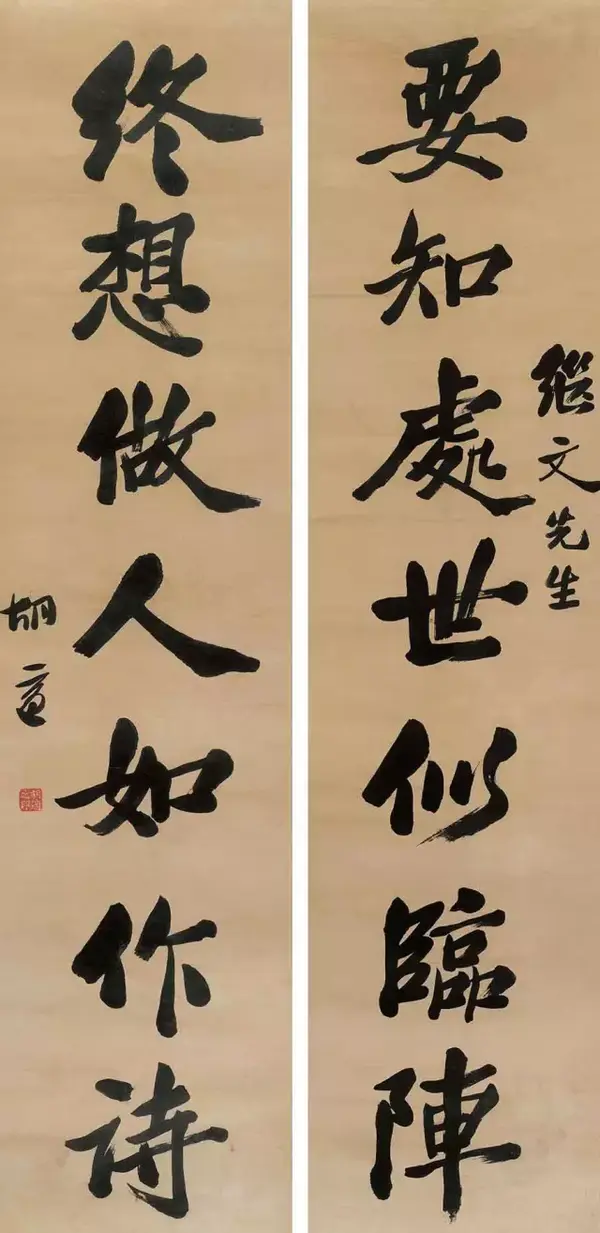 要知處世似臨陣
文先生
終想做人如作詩
胡適